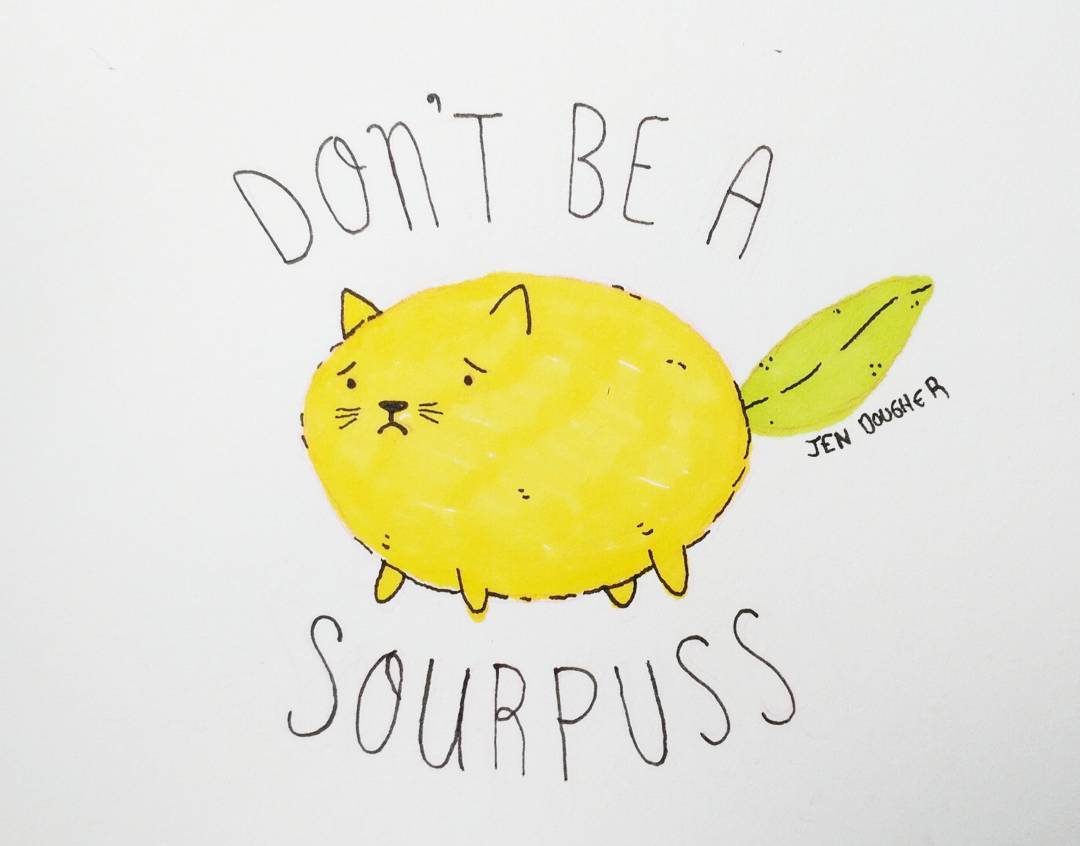 DON'T BE A
JEN DOUGHER
SOURPUSS